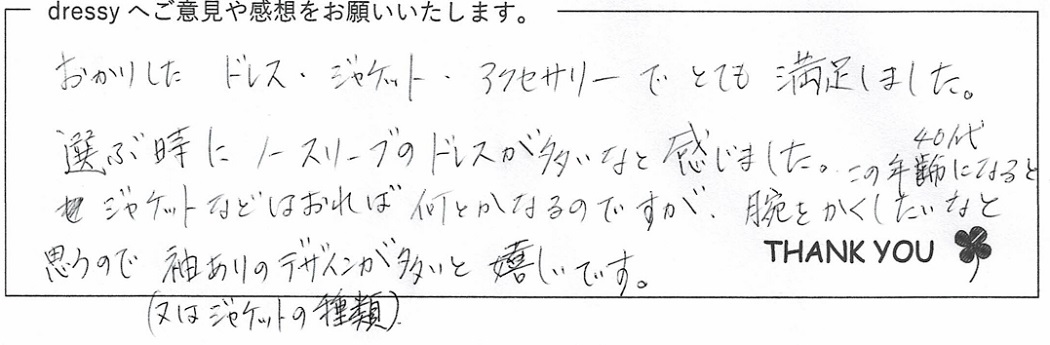 dressy へご意見や感想をお願いいたします。
おかりした ドレス・ジャケット・アクセサリーで とても 満足しました。
選ぶ時に ノースリーブのドレスが多いなと 感じました。この年齢になると
40代
ジャケットなどはおれば 何とかなるのですが、腕をかくしたいなと
思うので 袖ありのデザインが多いと 嬉しいです。
THANK YOU
(又はジャケットの種類)